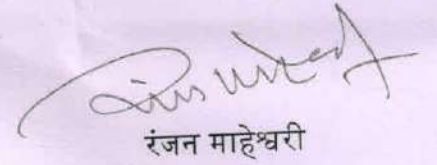 रंजन माहेश्वरी